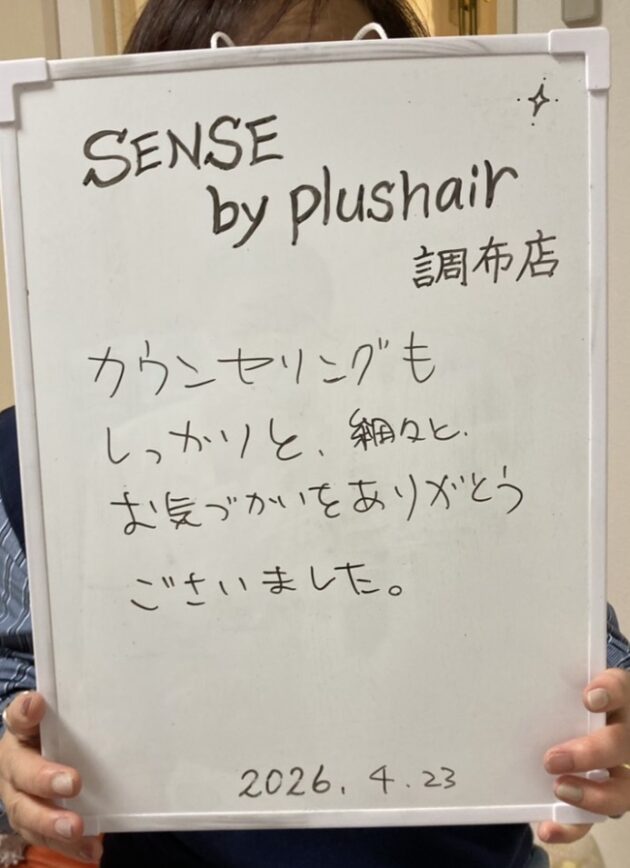 SENSE
by plushair
調布店
カウンセリングも
しっかりと、細々と、
お気づかいをありがとう
ございました。
2026.4.23